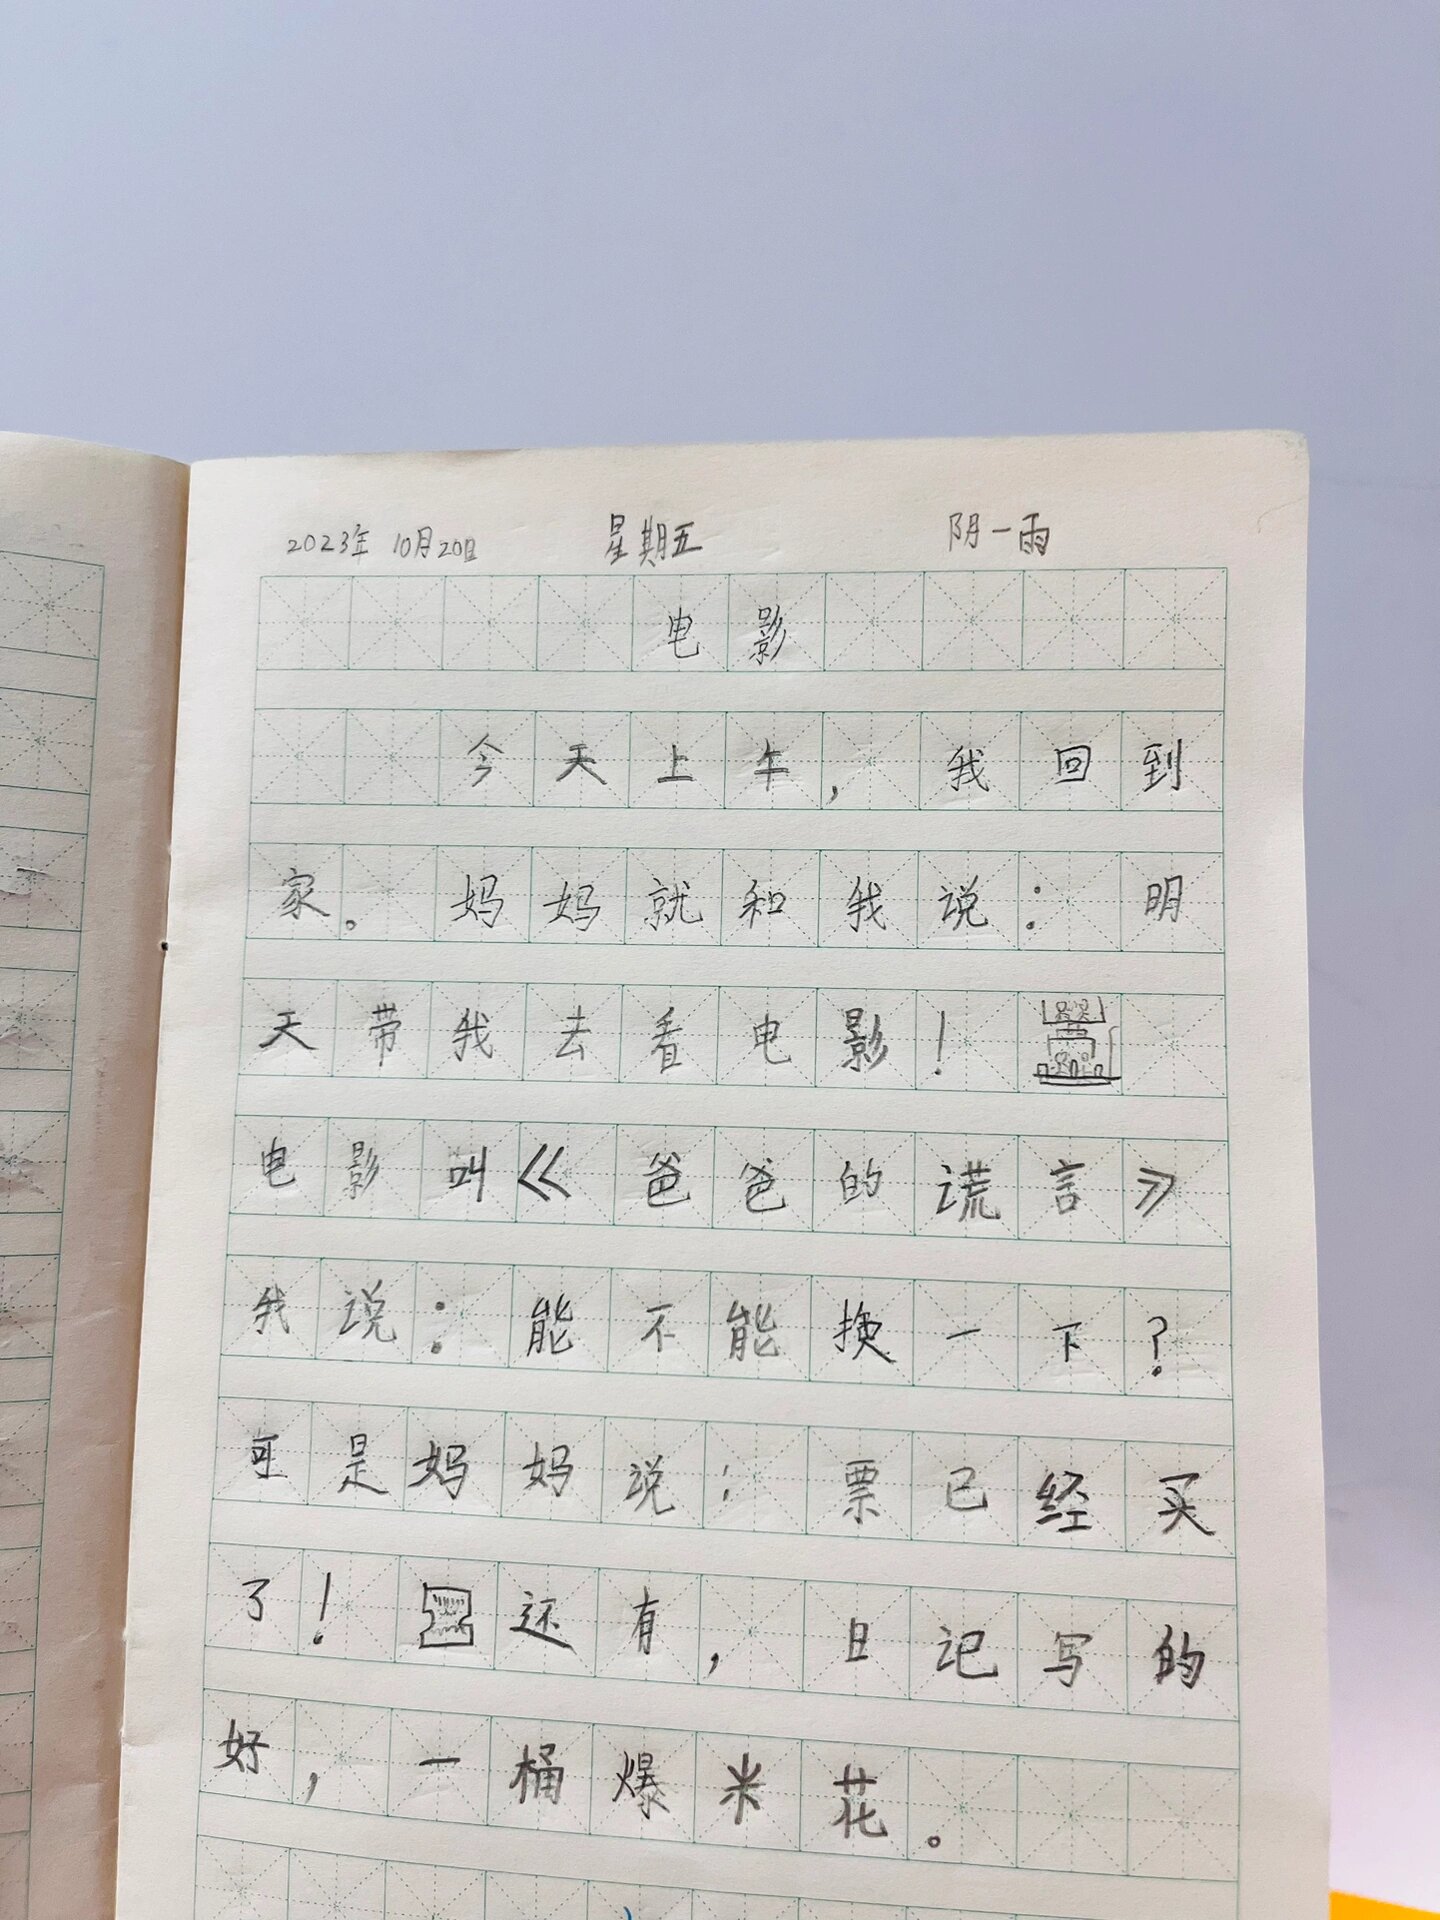 2023年 10月20日 星期五 阴一雨
电影
今天上午，我回到
家。妈妈就和我说：明
天带我去看电影！
电影叫《爸爸的谎言》
我说：能不能换一下？
可是妈妈说：票已经买
了！还有，日记写的
好，一桶爆米花。